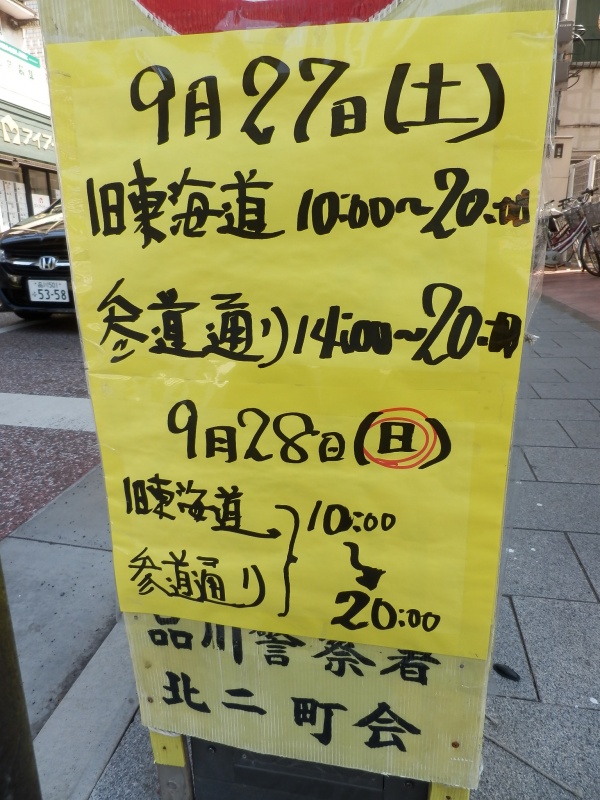 9月27日(土)
旧東海道 10:00~20:00
参道通り 14:00~20:00
9月28日(日)
旧東海道
参道通り
10:00
↓
20:00
品川警察署
北二町会
アイフ
53-58